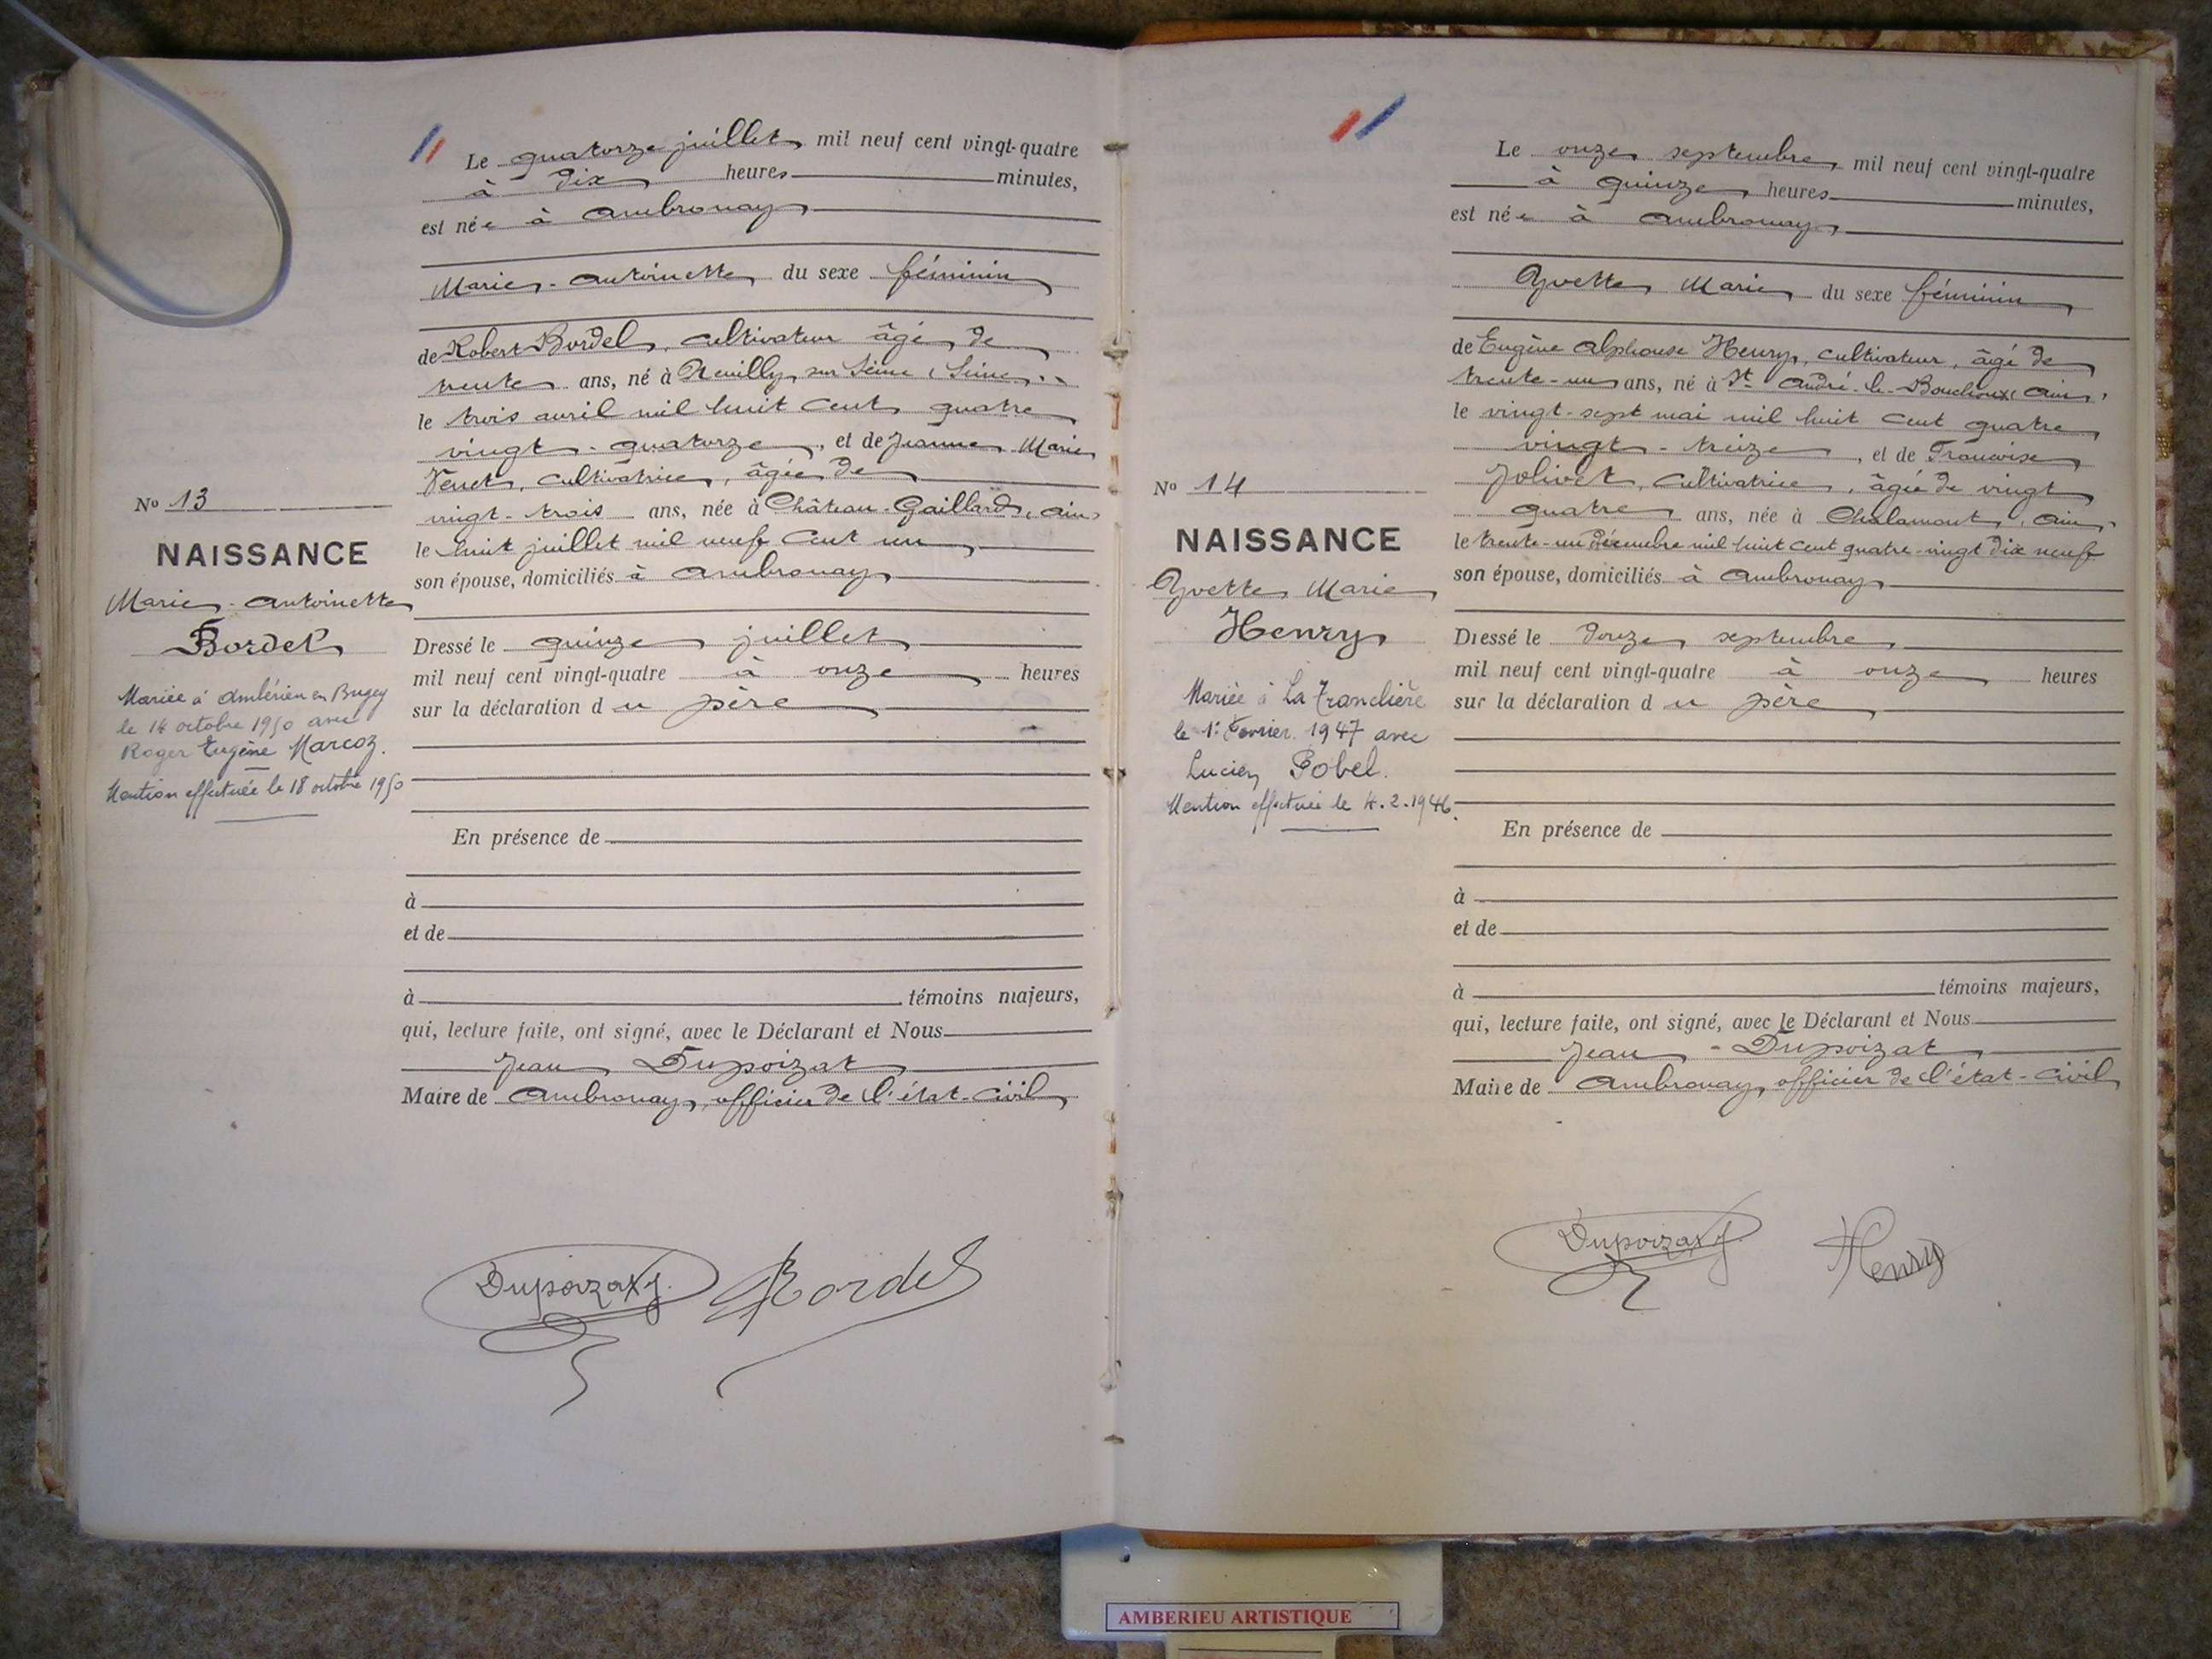 Le quatorze juillet mil neuf cent vingt-quatre
à dix heures minutes,
est née à Ambronay
Marie-Antoinette du sexe féminin
de Robert Bordel, cultivateur âgé de
trente ans, né à Neuilly sur Seine (Seine)
le trois avril mil huit cent quatre
vingt-quatorze, et de Jeanne Marie
cultivatrice, âgée de
vingt-trois ans, née à Château-Gaillard, Ain,
le huit juillet mil neuf cent un
son épouse, domiciliés à Ambronay
No 13
NAISSANCE
Marie-Antoinette
Bordel
Mariée à Ambérieu en Bugey
le 14 octobre 1950 avec
Roger Eugène Marcoz.
Mention effectuée le 18 octobre 1950
Dressé le quinze juillet
mil neuf cent vingt-quatre à onze heures
sur la déclaration du père
En présence de
à
et de
à témoins majeurs,
qui, lecture faite, ont signé, avec le Déclarant et Nous
Jean Dupoizat
Maire de Ambronay, officier de l'état-civil
Dupoizat J. Bordel
Le onze septembre mil neuf cent vingt-quatre
à quinze heures minutes,
est née à Ambronay
Yvette Marie du sexe féminin
de Eugène Alphonse Henry, cultivateur, âgé de
trente-un ans, né à St André-le-Bouchoux, Ain,
le vingt-sept mai mil huit cent quatre
vingt-treize, et de Françoise
Jolivet, cultivatrice, âgée de vingt
quatre ans, née à Chalamont, Ain,
le trente-un décembre mil huit cent quatre-vingt dix neuf
son épouse, domiciliés à Ambronay
No 14
NAISSANCE
Yvette Marie
Henry
Mariée à La Tranclière
le 1er Février 1947 avec
Lucien Pobel.
Mention effectuée le 4.2.1946.
Dressé le douze septembre
mil neuf cent vingt-quatre à onze heures
sur la déclaration du père
En présence de
à
et de
à témoins majeurs,
qui, lecture faite, ont signé, avec le Déclarant et Nous
Jean - Dupoizat
Maire de Ambronay, officier de l'état-civil
Dupoizat J. Henry
AMBERIEU ARTISTIQUE